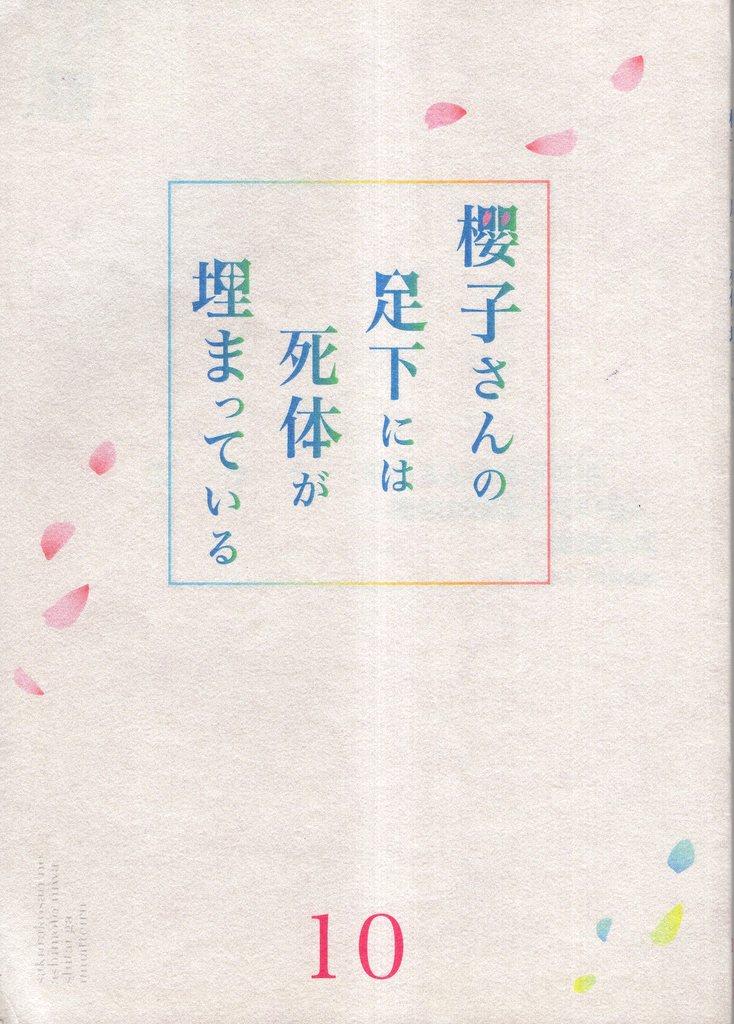 櫻子さんの
足下には
死体が
埋まっている
10
sakurakosan no
ashimoto niwa
shitai ga
umatteiru